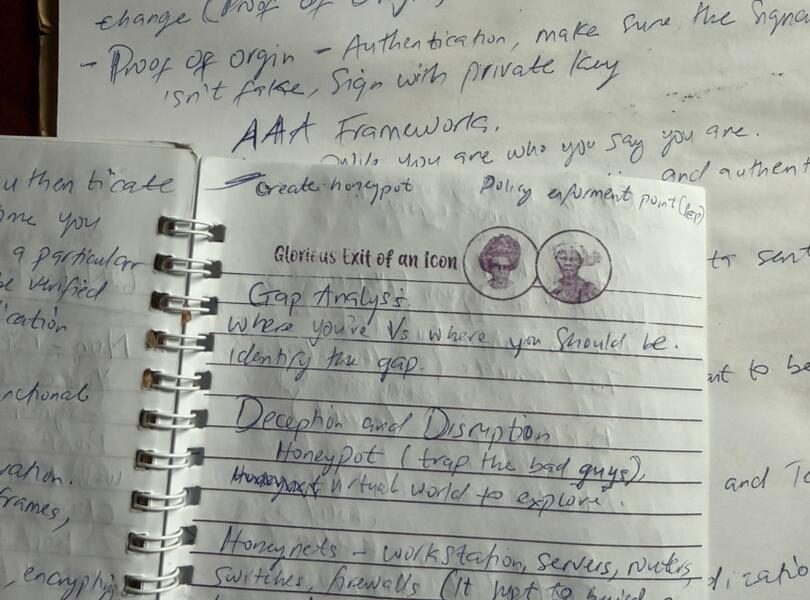 change (Proof of Origin)
- Proof of orgin - Authentication, make sure the Signa
isn't fake, Sign with private key
AAA Frameworks.
you are who you say you are.
and authent
uthenticate
me you
a particular
be verified
ication
nctional
ration.
frames,
, encryptio
Create honeypot
Policy enforment point (PEP)
Glorious Exit of an Icon
Gap Analysis.
Where you're Vs where you should be.
identify the gap.
Deception and Disruption
Honeypot (trap the bad guys),
virtual world to explore.
Honeynets - workstation, servers, routers,
Switches, firewalls (it just to build a
ts sent
nt to be
and To